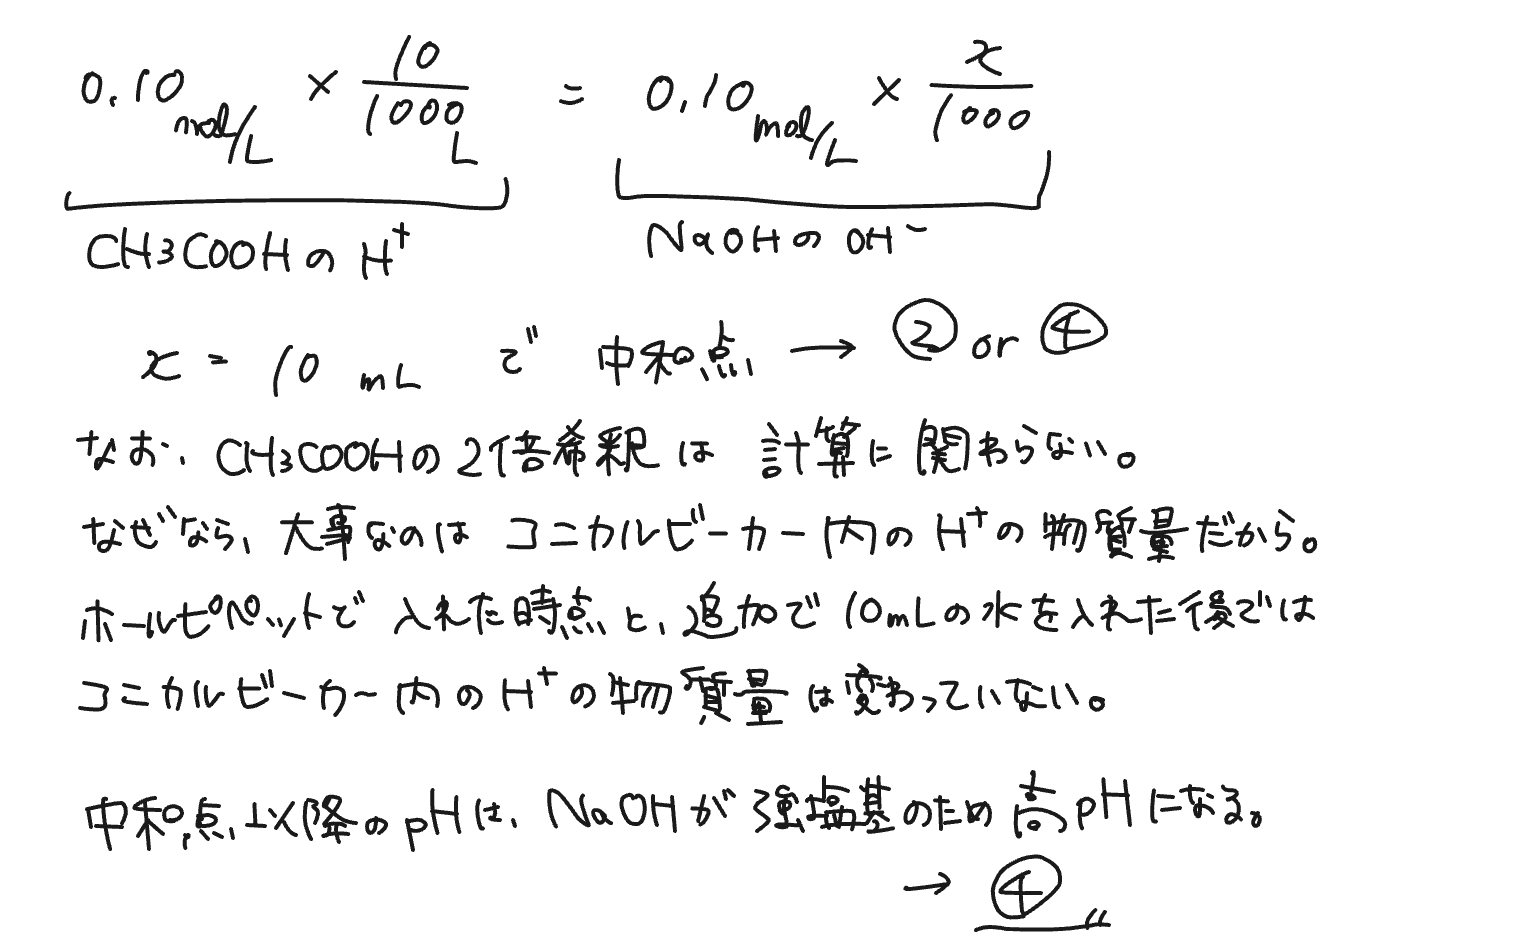 0.10 mol/L × 10/1000 L = 0.10 mol/L × x/1000
CH3COOHのH⁺ NaOHのOH⁻
x = 10 mL で 中和点 → ② or ④
なお、CH3COOHの2倍希釈は計算に関わらない。
なぜなら、大事なのはコニカルビーカー内のH⁺の物質量だから。
ホールピペットで入れた時点と、追加で10mLの水を入れた後では
コニカルビーカー内のH⁺の物質量は変わっていない。
中和点以降のpHは、NaOHが強塩基のため高pHになる。
→ ④